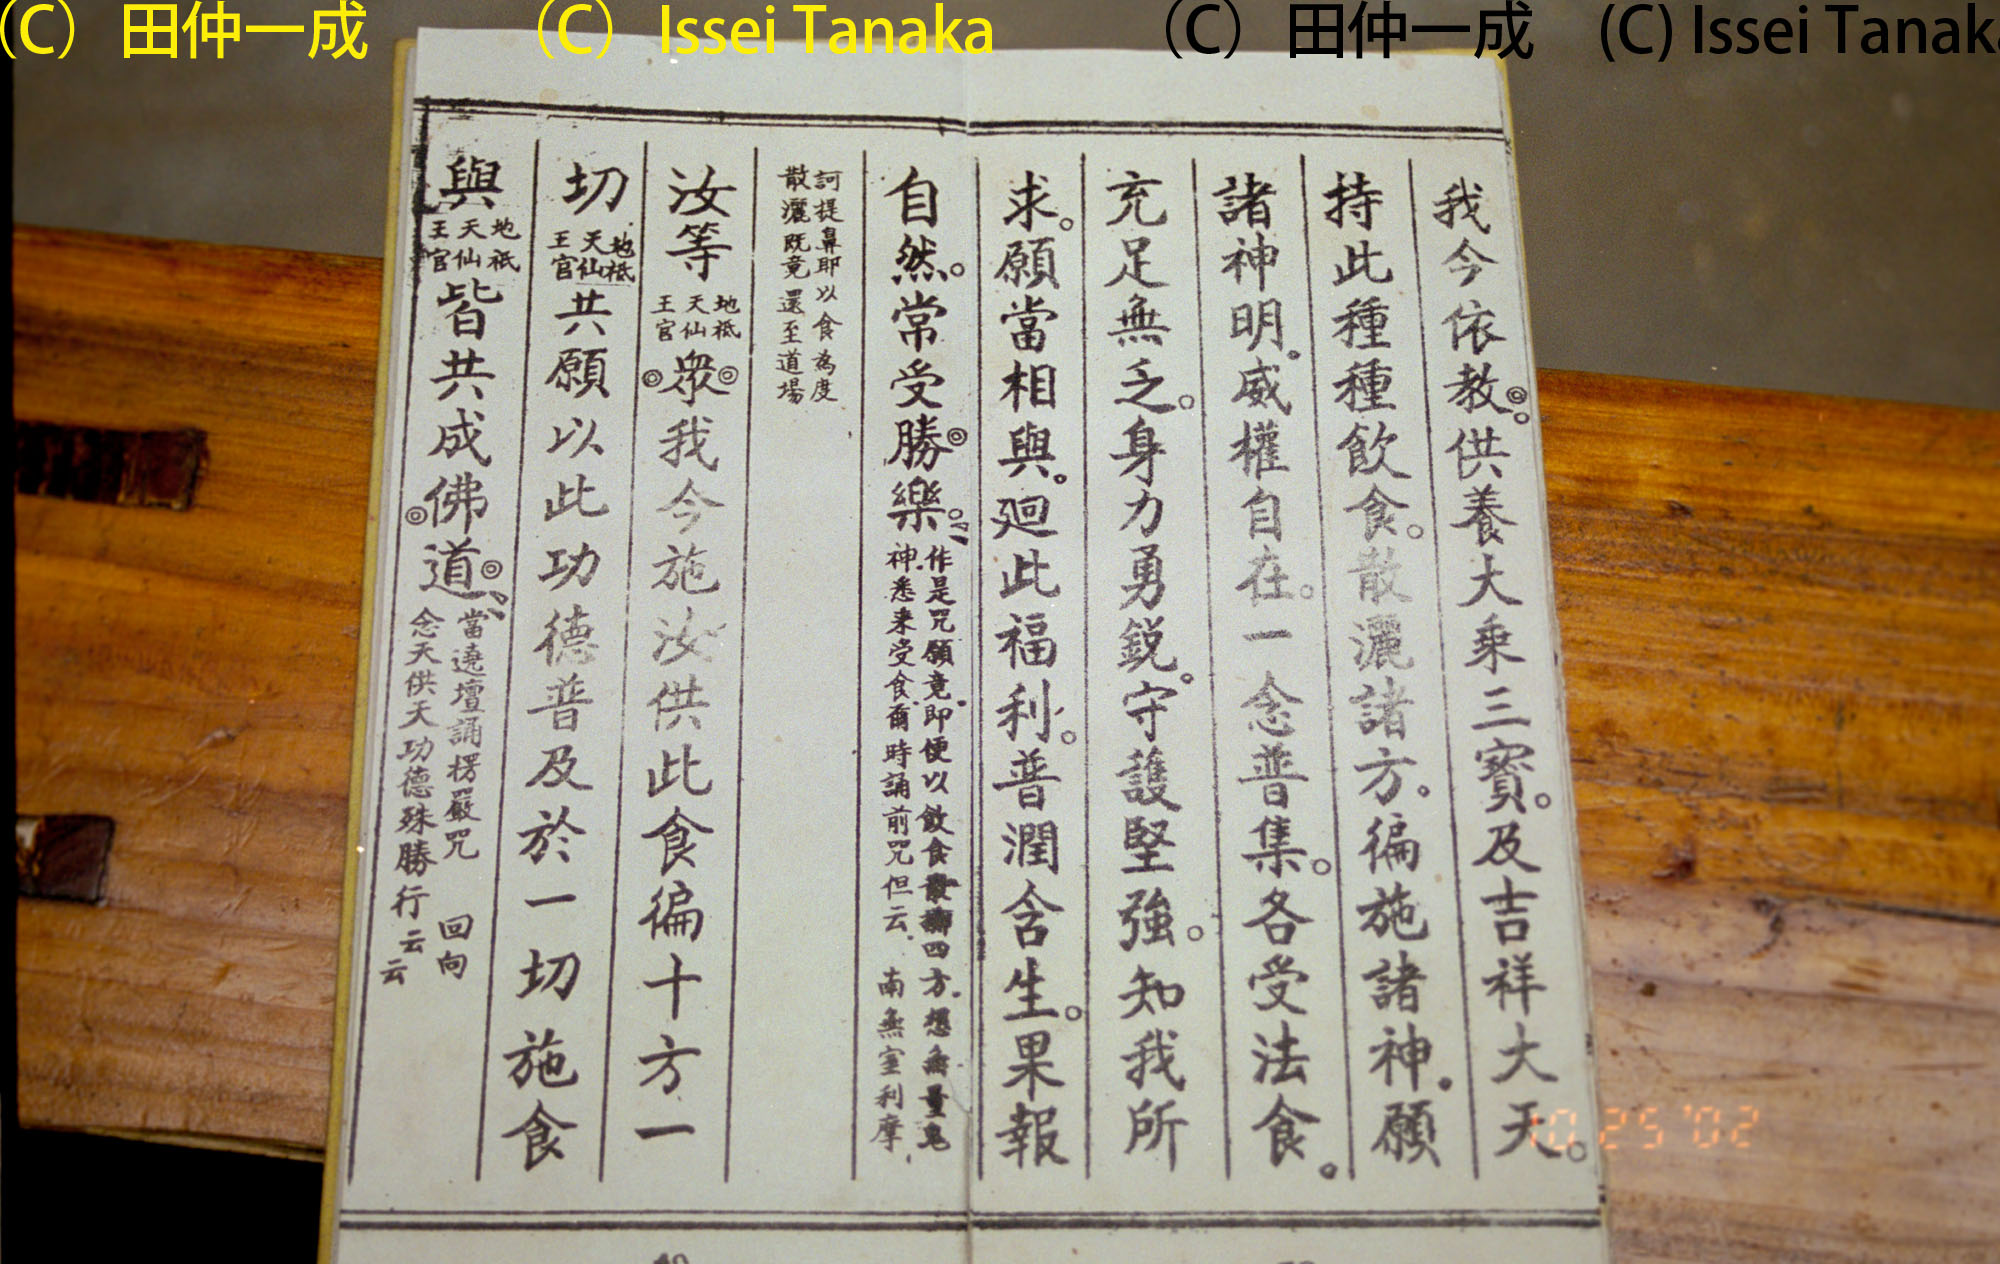 （C） 田仲一成 （C） Issei Tanaka （C） 田仲一成 (C) Issei Tanaka
我今依教。供養大乘三寶。及吉祥大天。
持此種種飲食。散灑諸方。徧施諸神。願
諸神明。威權自在。一念普集。各受法食。
充足無乏。身力勇銳。守護堅強。知我所
求。願當相與。廻此福利。普潤含生。果報
自然。常受勝樂。
作是咒願竟。即便以飲食散擲四方。想無量鬼
神。悉來受食。爾時誦前咒但云。南無室利摩
訶提鼻耶以食為度
散灑既竟還至道場
汝等
地祇
天仙
王官
眾我今施汝供此食徧十方一
切
地祇
天仙
王官
共願以此功德普及於一切施食
與
地祇
天仙
王官
皆共成佛道。
當遶壇誦楞嚴咒 回向
念天供天功德殊勝行云云
10 25 '02